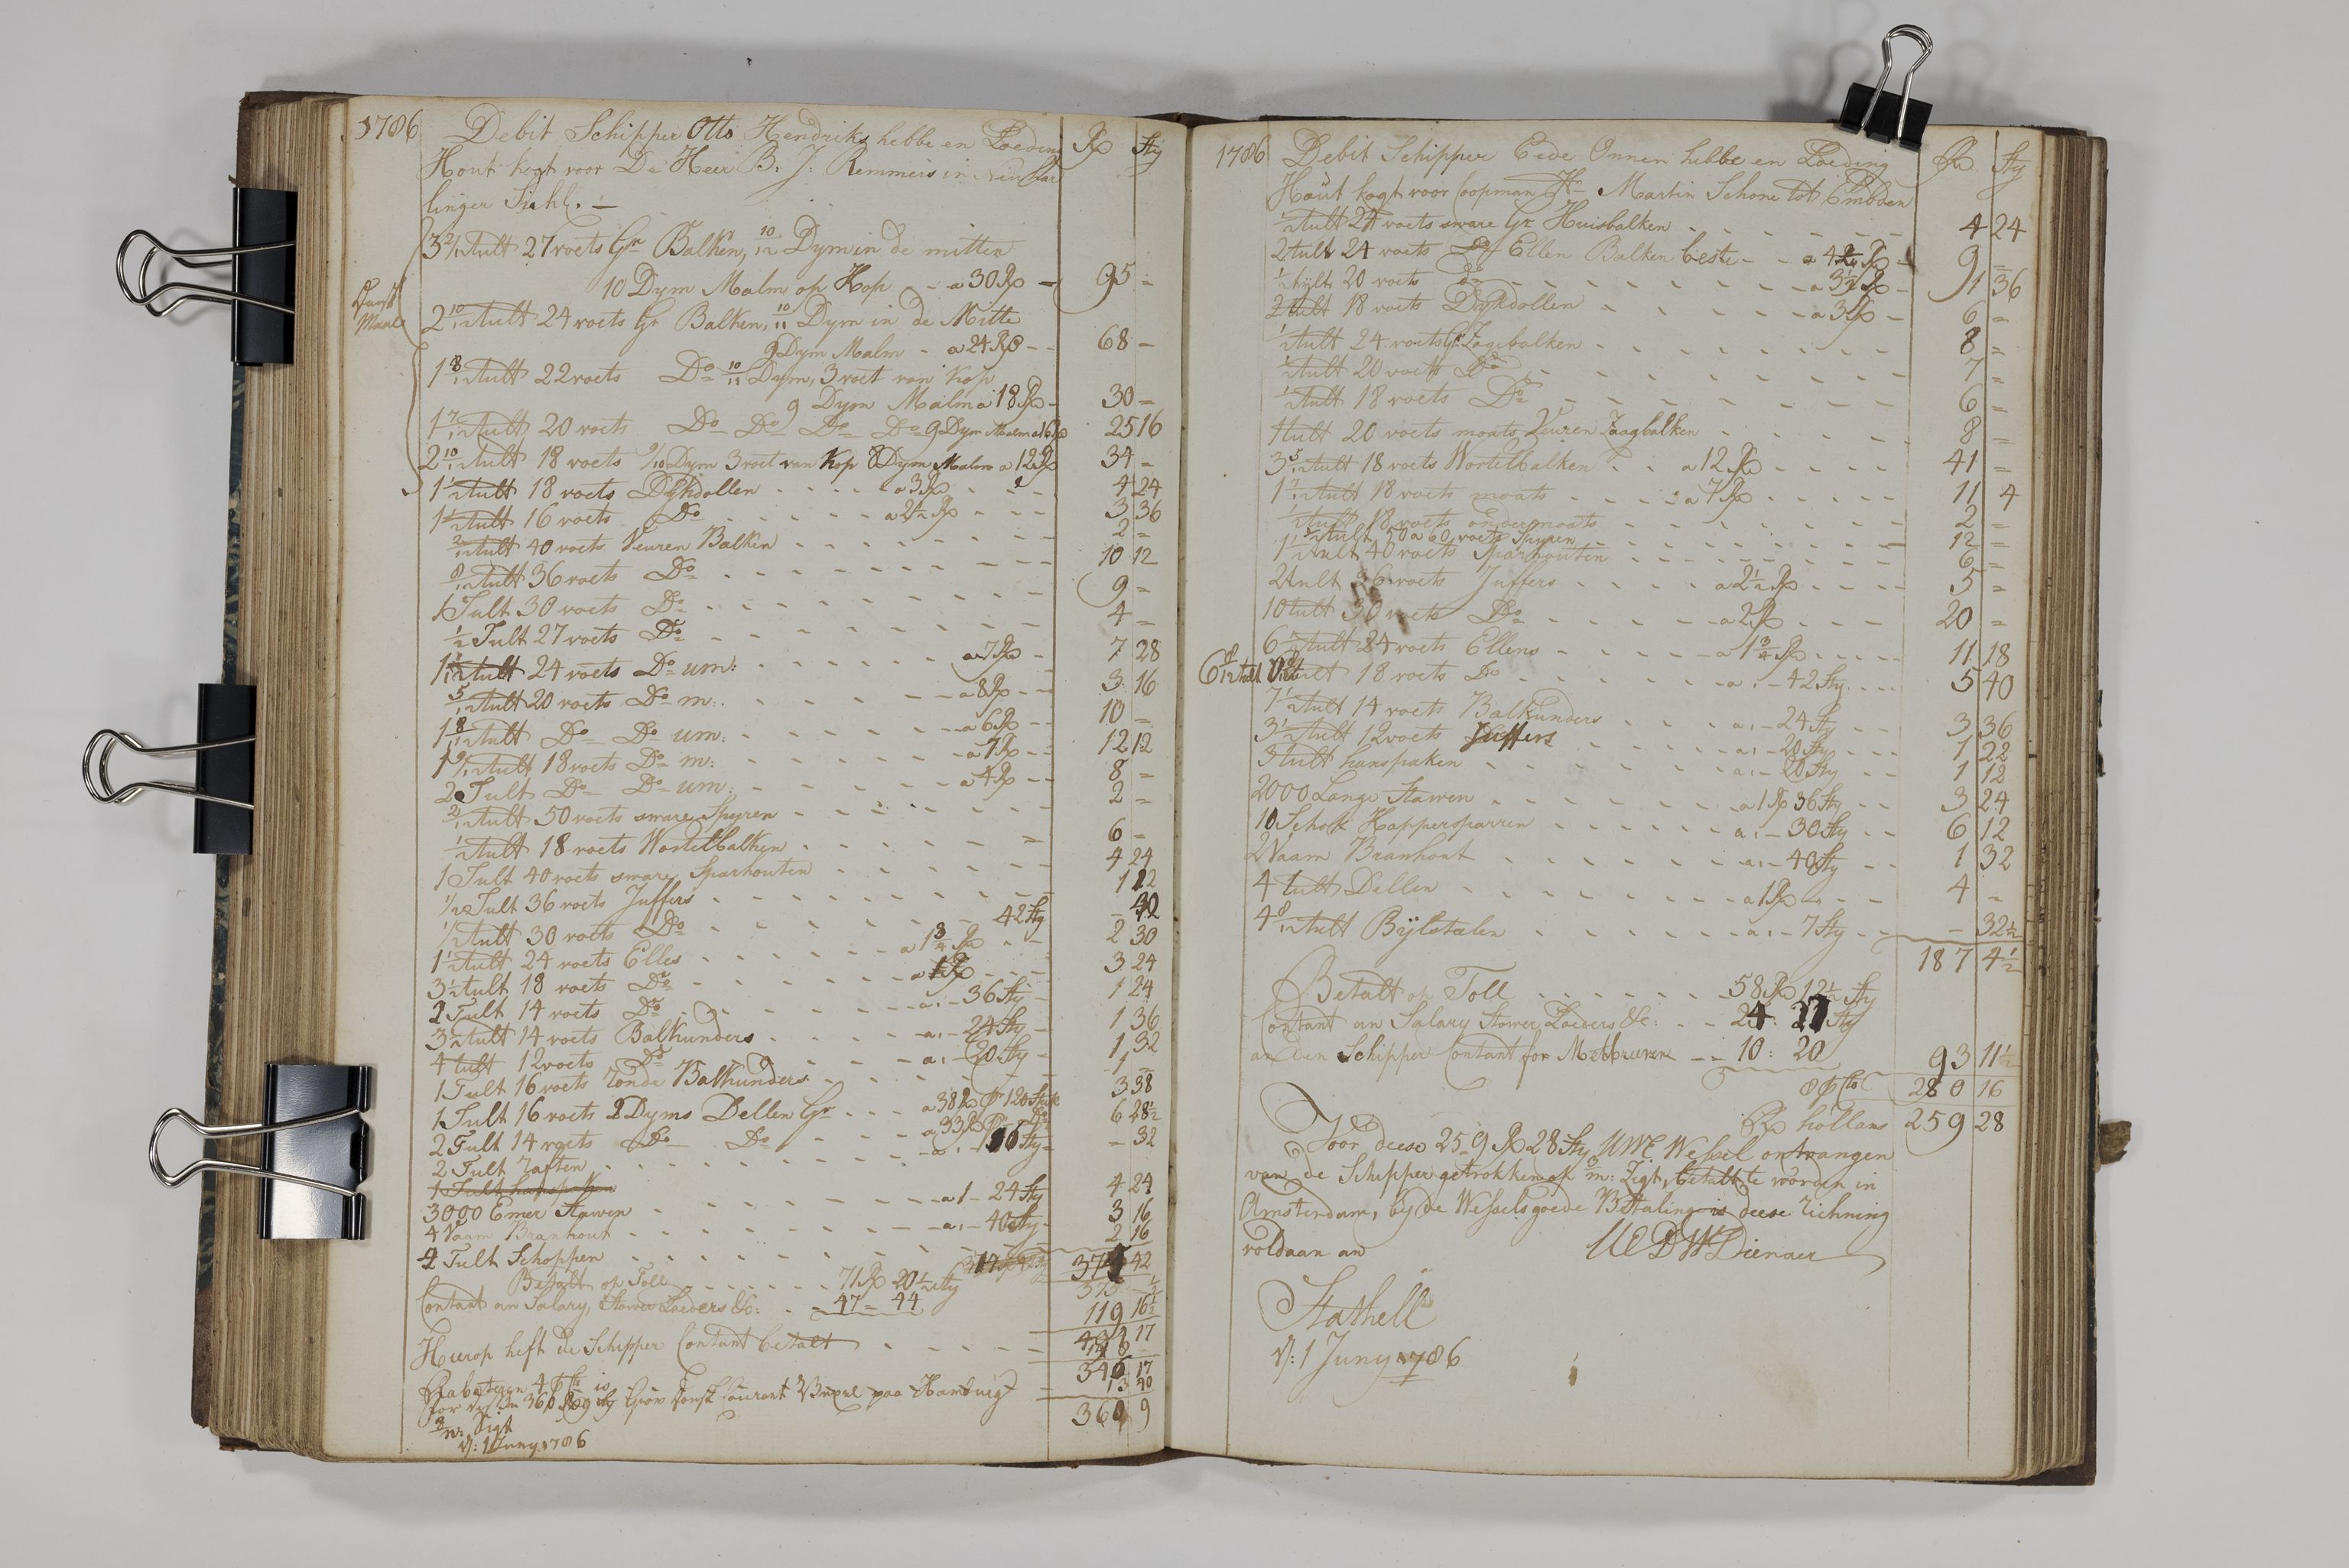 1786 Debit Schipper Otto Hendriks hebbe en Loeding Rd Sty
Hout kogt voor De Heer B: J: Remmers in
linger Siehl. —
3 2/12 tult 27 voets Gr Balken, 10/12 Dym in de mitten
10 Dym Malm op Kop - a 30 Rd - 95 =
Maale
2 10/12 tult 24 voets Gr Balken, 10/11 Dym in de Mitte
9 Dym Malm - a 24 Rd - - 68 -
1 8/12 tult 22 voets Do 10/11 Dym, 3 voet van Kop
9 Dym Malm a 18 Rd - 30 =
1 7/12 tult 20 voets Do Do Do Do 9 Dym Malm a 16 Rd 25 16
2 10/12 tult 18 voets 9/10 Dym 3 voet van Kop 8 Dym Malm a 12 Rd 34 =
1 1/2 tult 18 voets Dykdollen - - - - a 3 Rd - - 4 24
1 1/2 tult 16 voets Do - - - - a 2 1/2 Rd - - - 3 36
2/12 tult 40 voets Veuren Balken - - - - 2 =
9/12 tult 36 voets Do - - - - 10 12
1 Tult 30 voets Do - - - - 9 =
1/2 Tult 27 voets Do - - - - 4 =
tult 24 voets Do um: - - - - a 7 Rd - 7 28
5/12 tult 20 voets Do m: - - - - a 8 Rd - - 3 16
1 8/12 tult Do Do um: - - - - a 6 Rd - - 10 -
1 9/12 tult 18 voets Do m: - - - - a 7 Rd - - 12 12
2 Tult Do Do um: - - - - a 4 Rd - - 8 =
2/12 tult 50 voets sware Spyren - - - - 2 =
1/2 tult 18 voets Wortelbalken - - - - 6 -
1 Tult 40 voets sware Sparhouten - - - - 4 24
1/2 Tult 36 voets Juffers - - - - 1 12
1/2 tult 30 voets Do - - - - 42 Sty
1 1/2 tult 24 voets Elles - - - - a 1 3/4 Rd - - 2 30
3 1/2 tult 18 voets Do - - - - a 1 Rd - - - 3 24
2 Tult 14 voets Do - - - - a: - 36 Sty - 1 24
3 1/2 tult 14 voets Balkunders - - - - a: - 24 Sty - 1 36
4 tult 12 voets Do - - - - a: - 20 Sty - 1 32
1 Tult 16 voets ronde Balkunders - - - - 1 -
1 Tult 16 voets 2 Dyms Dellen Gr - - - a 38 Rd pr 120 Stuk 3 38
2 Tult 14 voets Do Do - - - a 33 Rd Pr Do 6 28 1/2
2 Tult raften - - - - a: - 16 Sty - - 32
1 Tult hanspaken
3000 Emer Stawen - - - - a 1 - 24 Sty 4 24
4 Vaam Branhout - - - - a: - 40 Sty - 3 16
4 Tult Schoppen - - - - 2 16
42
Betalt op Toll - - - - 71 Rd 20 1/2 Sty
Contant an Salary, Stower Loeders &c: - 47 = 44 119 16 1/2
17
Hierop heft de Schipper Contant betalt - - - -
346 17
Rabatt an 4 pCto is 13 40
for Rd Sty Grov Dansk Courant Vexel paa Hamburg 360 9
3/m: Sigt
d: 1 Juny 1786
1786 Debit Schipper Eede Onnen hebbe en Loeding Rd Sty
Hout kogt voor Coopman Hr Martin Schone tot Embden
1/2 tult 24 voets sware Gr Huisbalken - - - - 4 24
2 tult 24 voets Do Ellen Balken beste - - a 4 1/2 Rd - 9 =
1/2 tylt 20 voets do - - - - a 3 1/2 Rd - 1 36
2 tult 18 voets Dykdollen - - - - a 3 Rd - 6 =
1/2 tult 24 voets Gr Zagebalken - - - - 8 =
1/2 tult 20 voets Do - - - - 7 =
1/2 tult 18 voets Do - - - - 6 =
1 tult 20 voets moats Veuren Zaagbalken - - - - 8 =
3 5/12 tult 18 voets Wortelbalken - - a 12 Rd - - - - 41 =
1 7/12 tult 18 voets moats - - - : a 7 Rd - - - - 11 4
1/2 tult 18 voets ondermoats - - - - 2 =
tult 50 a 60 voets Spyren - - - - 12 =
1 1/2 tult 40 voets Sparhouten - - - - 6 =
2 tult 36 voets Juffers - - - - a 2 1/2 Rd - - - 5 =
10 tult 30 voets Do - - - - a 2 Rd - - - 20 =
6 1/2 tult 24 voets Ellens - - - - a 1 3/4 Rd - - - - 11 18
6 8/12 tult tult 18 voets Do - - - - a: - 42 Sty - - - 5 40
7 1/2 tult 14 voets Balkunders - - - - a: - 24 Sty - - 3 36
3 1/2 tult 12 voets Juffers - - - - a: - 20 Sty - - - 1 22
3 tult hanspaken - - - - a: - 20 Sty - - 1 12
2000 Lange Stawen - - - - a 1 Rd 36 Sty - - 3 24
10 Schok Happersparren - - - - a: - 30 Sty - - 6 12
2 Vaam Branhout - - - - a: - 40 Sty - - 1 32
4 tult Dellen - - - - a 1 Rd - - - 4 -
4 8/12 tult Byletalen - - - - a: - 7 Sty - - - 32 1/2
187 4 1/2
Betalt op Toll - - - - 58 Rd 12 1/2 Sty
Contant an Salary Stower, Loeders &c: - - 24: 27 Sty
an den Schipper Contant for - - 10: 20 93 11 1/2
8 p Cto 280 16
Rd hollans 259 28
Voor deese 259 Rd 28 Sty UWE Wessel ontvangen
van de Schipper getrokken op 3/m: Zigt, betalt te worden in
Amsterdam, by de Wessels goede Betaling is deese richning
voldaan an UEDWDienaer
Stathell
d: 1 Juny 1786